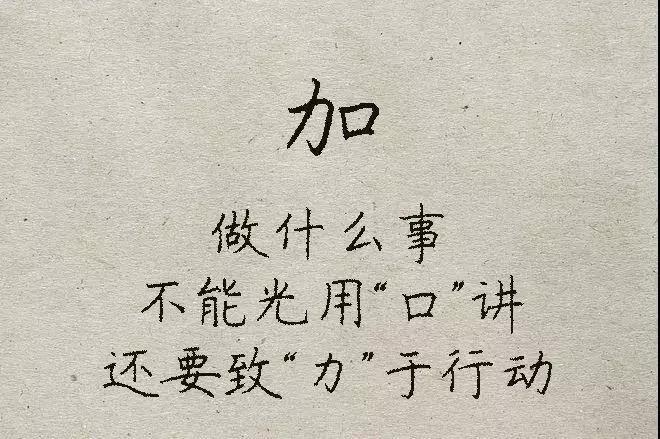 加
做什么事
不能光用“口”讲
还要致“力”于行动